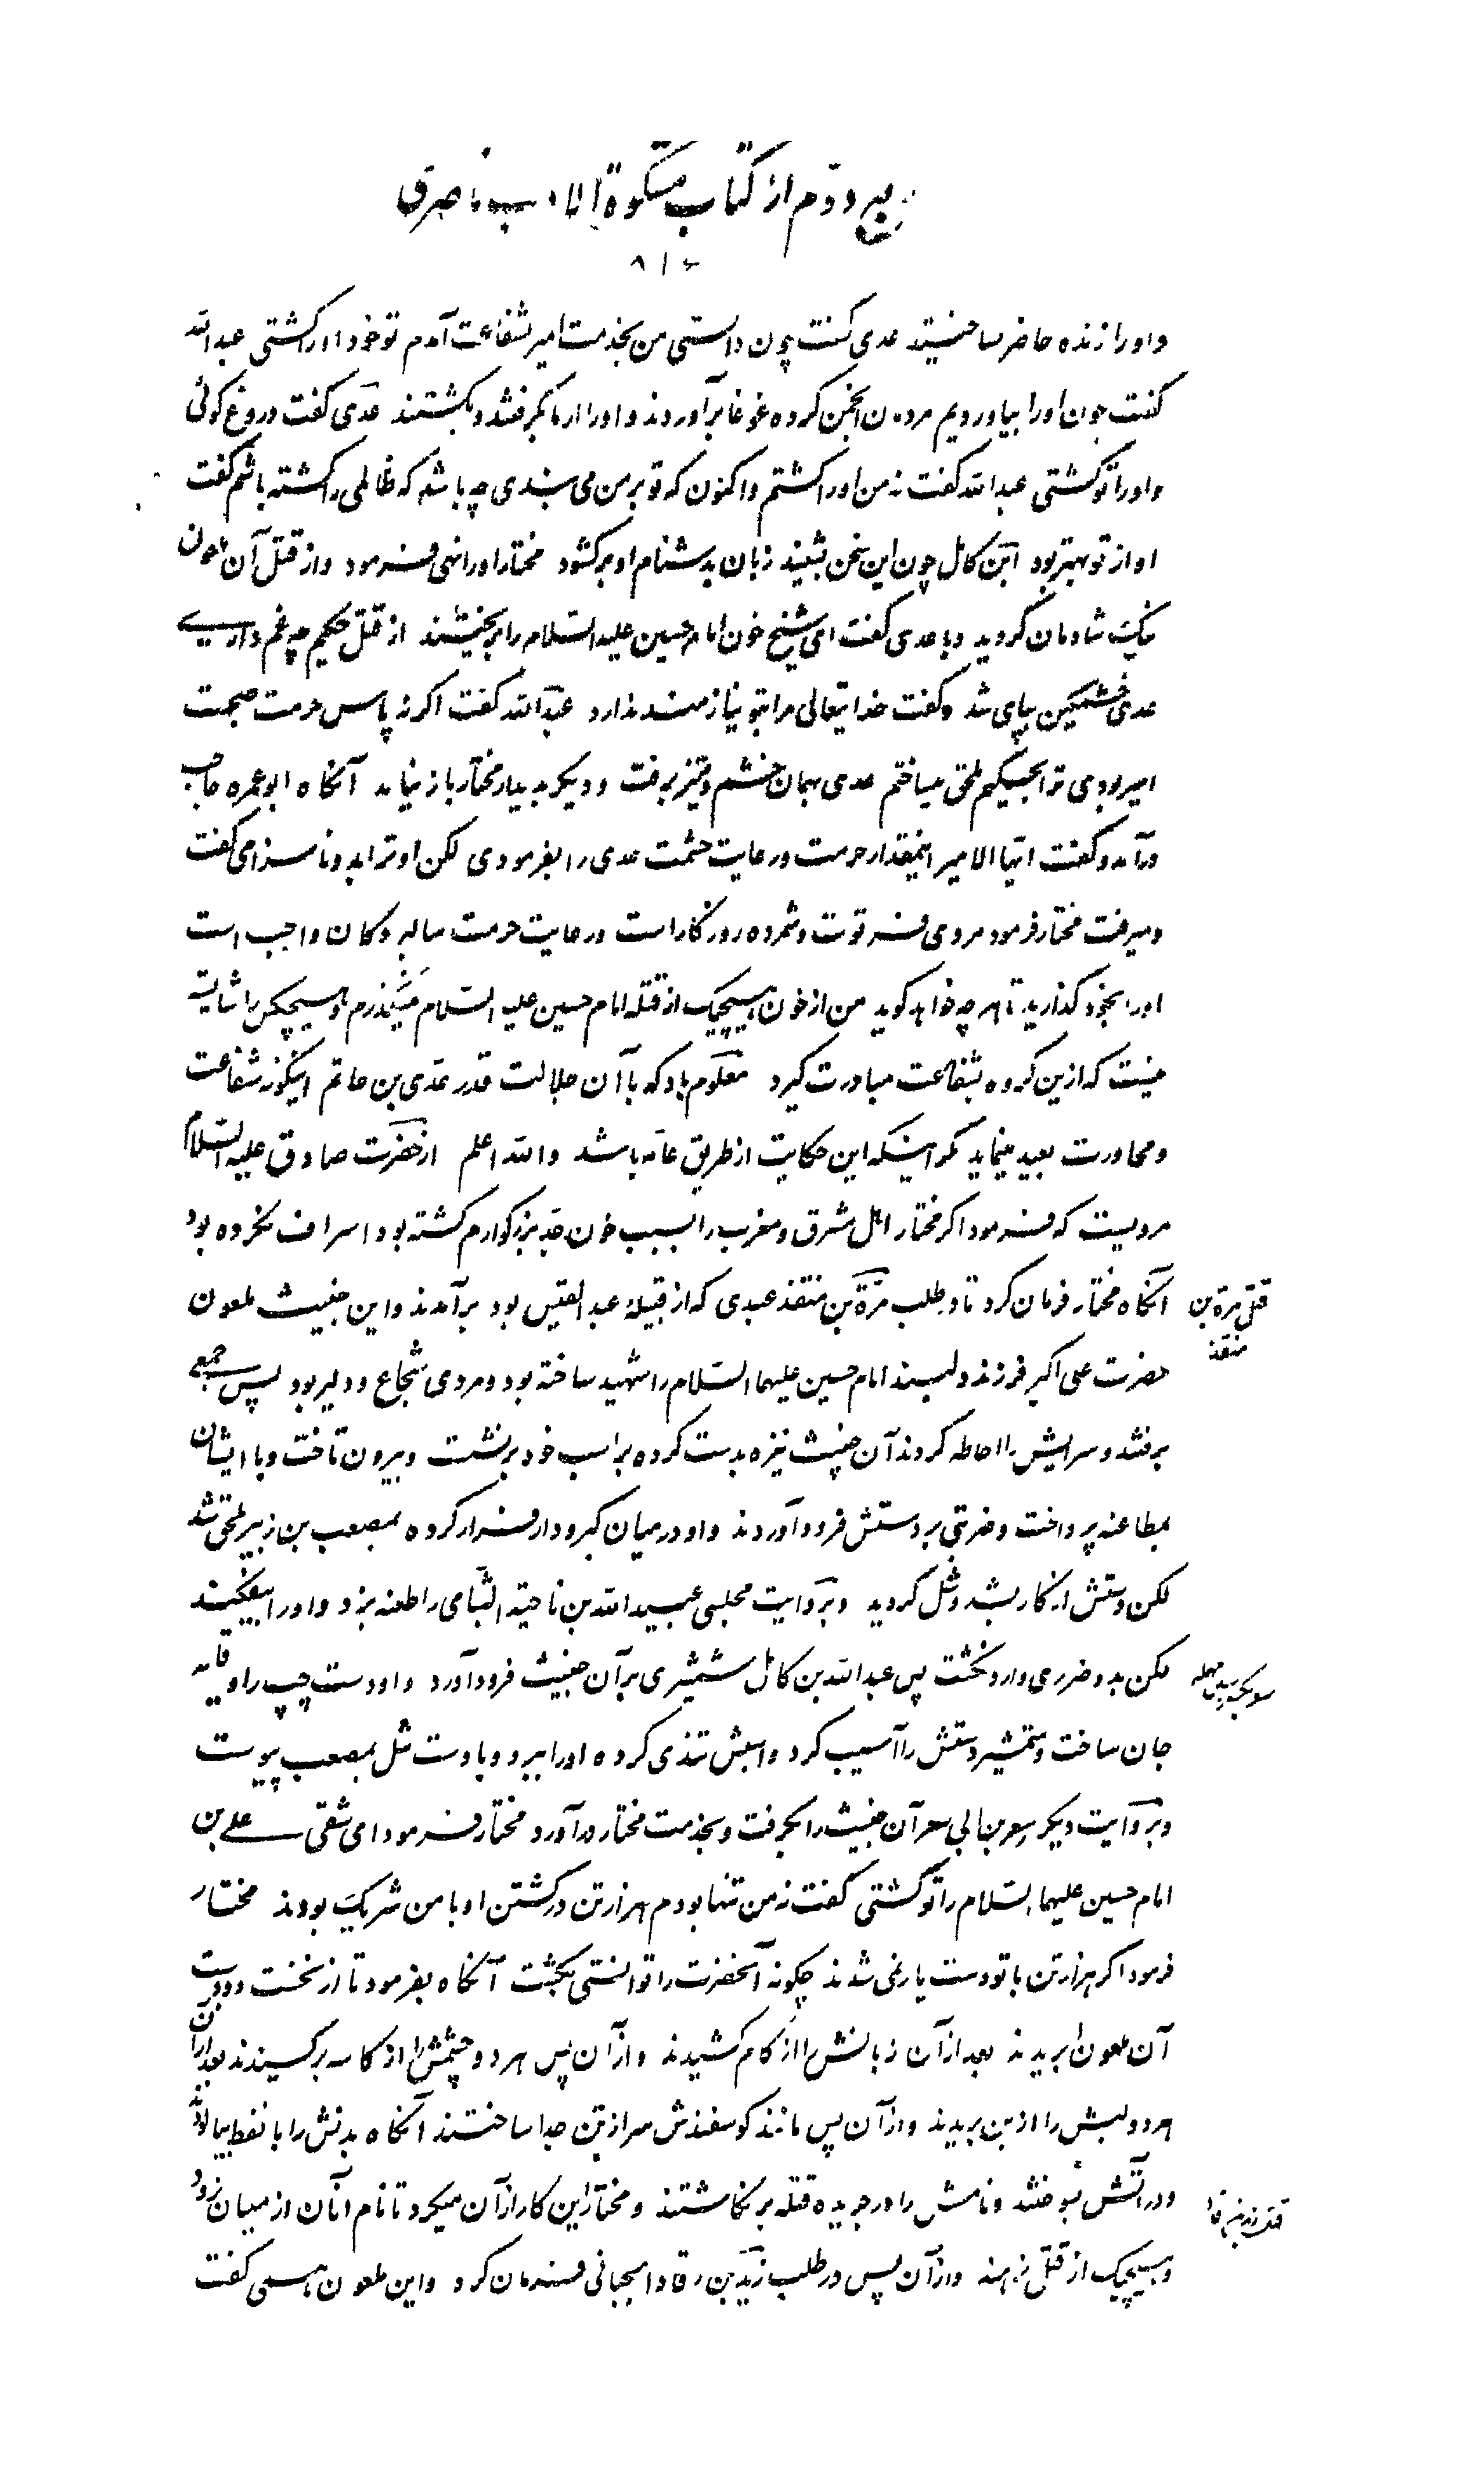 ربع دوم از کتاب مشکوة الادب ناصری
۸۱۶
و او را زنده حاضر ساختید عدی گفت چون دانستی من بخدمت امیر بشفاعت آمدم تو خود او را کشتی عبد الله
گفت چون او را بیاوردیم مردمان انجمن کرده غوغا برآوردند و او را از ما بگرفتند و بکشتند عدی گفت دروغ گوئی
و او را تو کشتی عبد الله گفت نه من او را کشتم و اکنون که تو بر من می بندی چه باشد که ظالمی را کشته باشم گفت
او از تو بهتر بود ابن کامل چون این سخن بشنید زبان بدشنام او برگشود مختار او را نهی فرمود و از قتل آن ملعون
نیک شادمان گردید و با عدی گفت ای شیخ خون امام حسین علیه السلام را بریختند از قتل حکیم چه غم داری
عدی خشمگین بپای شد و گفت خدایتعالی مرا بتو نیازمند ندارد عبد الله گفت اگر نه پاس حرمت صحبت
امیر بودی ترا بحکیم ملحق میساختم عدی بهمان خشم و تیز برفت و دیگر بدیدار مختار باز نیامد آنگاه ابو عمره حاجب
درآمد و گفت ایها الامیر اینمقدار حرمت و رعایت حشمت عدی را بفرمودی لکن او ترا بد و ناسزا می گفت
و میرفت مختار فرمود مردی فرتوت و شمرده روزگار است و رعایت حرمت سالخوردکان واجب است
او را بخود گذارید تا هر چه خواهد گوید من از خون هیچیک از قتله امام حسین علیه السلام نمیگذرم و هیچکس را شایسته
نیست که ازین گروه بشفاعت مبادرت گیرد معلوم باد که با آن جلالت قدر عدی بن حاتم اینگونه شفاعت
و محاورت بعید مینماید مگر اینکه این حکایت از طریق عامه باشد و الله اعلم از حضرت صادق علیه السلام
مرویست که فرمود اگر مختار اهل مشرق و مغرب را بسبب خون جد بزرگوارم کشته بود اسراف نکرده بود
آنگاه مختار فرمان کرد تا در طلب مرة بن منقذ عبدی که از قبیله عبد القیس بود برآمدند و این خبیث ملعون
قتل مرة بن
منقذ
حضرت علی اکبر فرزند دلبند امام حسین علیهما السلام را شهید ساخته بود و مردی شجاع و دلیر بود پس جمعی
برفتند و سرایش را احاطه کردند آن خبیث نیزه بدست کرده بر اسب خود برنشست و بیرون تاخت و با ایشان
بمطاعنه پرداخت و ضربتی بر دستش فرود آوردند و او در میان گیر و دار فرار کرده بمصعب بن زبیر ملحق شد
لکن دستش از کار بشد و شل گردید و بروایت مجلسی عبید الله بن ناجیة الشبامی را طعنه بزد و او را بیفکند
لکن بدو ضرری وارد نگشت پس عبد الله بن کامل شمشیری بر آن خبیث فرود آورد و او دست چپ را وقایه
جان ساخت و شمشیر دستش را آسیب کرد و اسبش تندی کرده او را ببرد و با دست شل بمصعب پیوست
و بروایت دیگر سعر بن ابی سعر آن خبیث را بگرفت و بخدمت مختار در آورد مختار فرمود ای شقی علی بن
امام حسین علیهما السلام را تو کشتی گفت نه من تنها بودم هزار تن در کشتن او با من شریک بودند مختار
فرمود اگر هزار تن با تو دست یار نمی شدند چگونه آنحضرت را توانستی بکشت آنگاه بفرمود تا از نخست دو دست
آن ملعون را بریدند بعد از آن زبانش را از کام کشیدند و از آن پس هر دو چشمش را از کاسه برکشیدند بعد از آن
هر دو لبش را از بن بریدند و از آن پس مانند گوسفندش سر از تن جدا ساختند آنگاه بدنش را با نفط بیالودند
و در آتش بسوختند و نامش را در جریده قتله برنگاشتند و مختار این کار از آن میکرد تا نام آنان از میان نرود
و هیچیک از قتل نرهند و از آن پس در طلب زید بن رقاد الجبانی فرمان کرد و این ملعون همی گفت